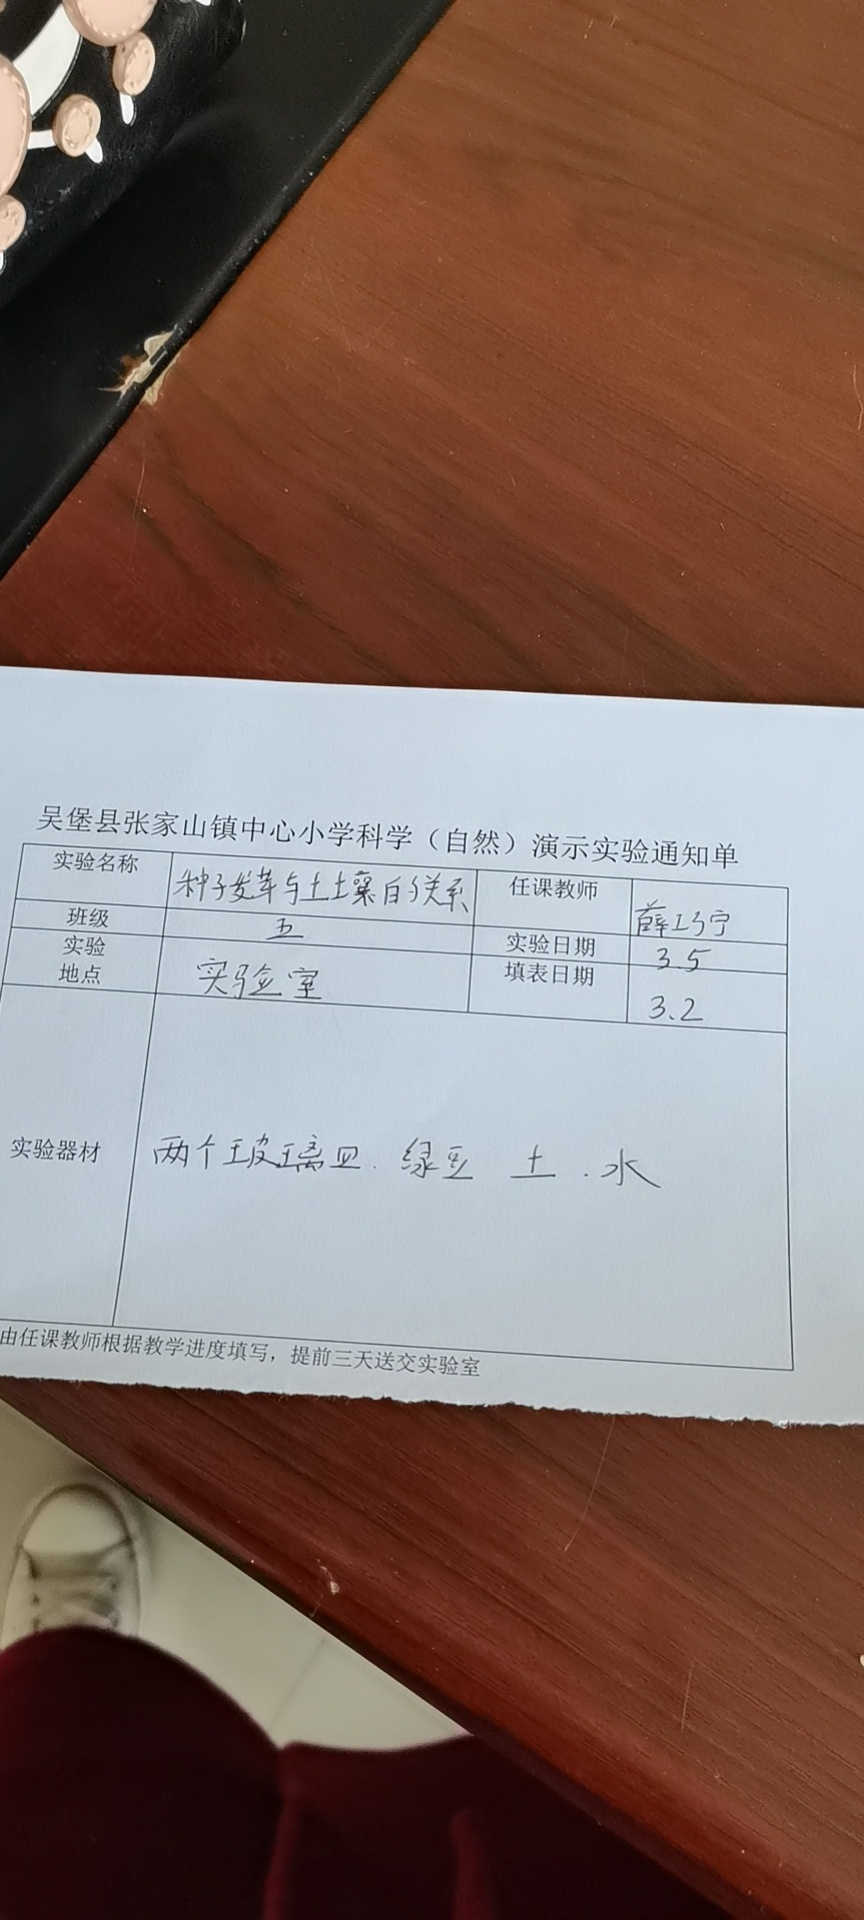 吴堡县张家山镇中心小学科学（自然）演示实验通知单
实验名称 种子发芽与土土壤的关系 任课教师 薛巧宁
班级 五 实验日期 3.5
实验地点 实验室 填表日期 3.2
实验器材 两个玻璃皿. 绿豆 土 . 水
由任课教师根据教学进度填写，提前三天送交实验室